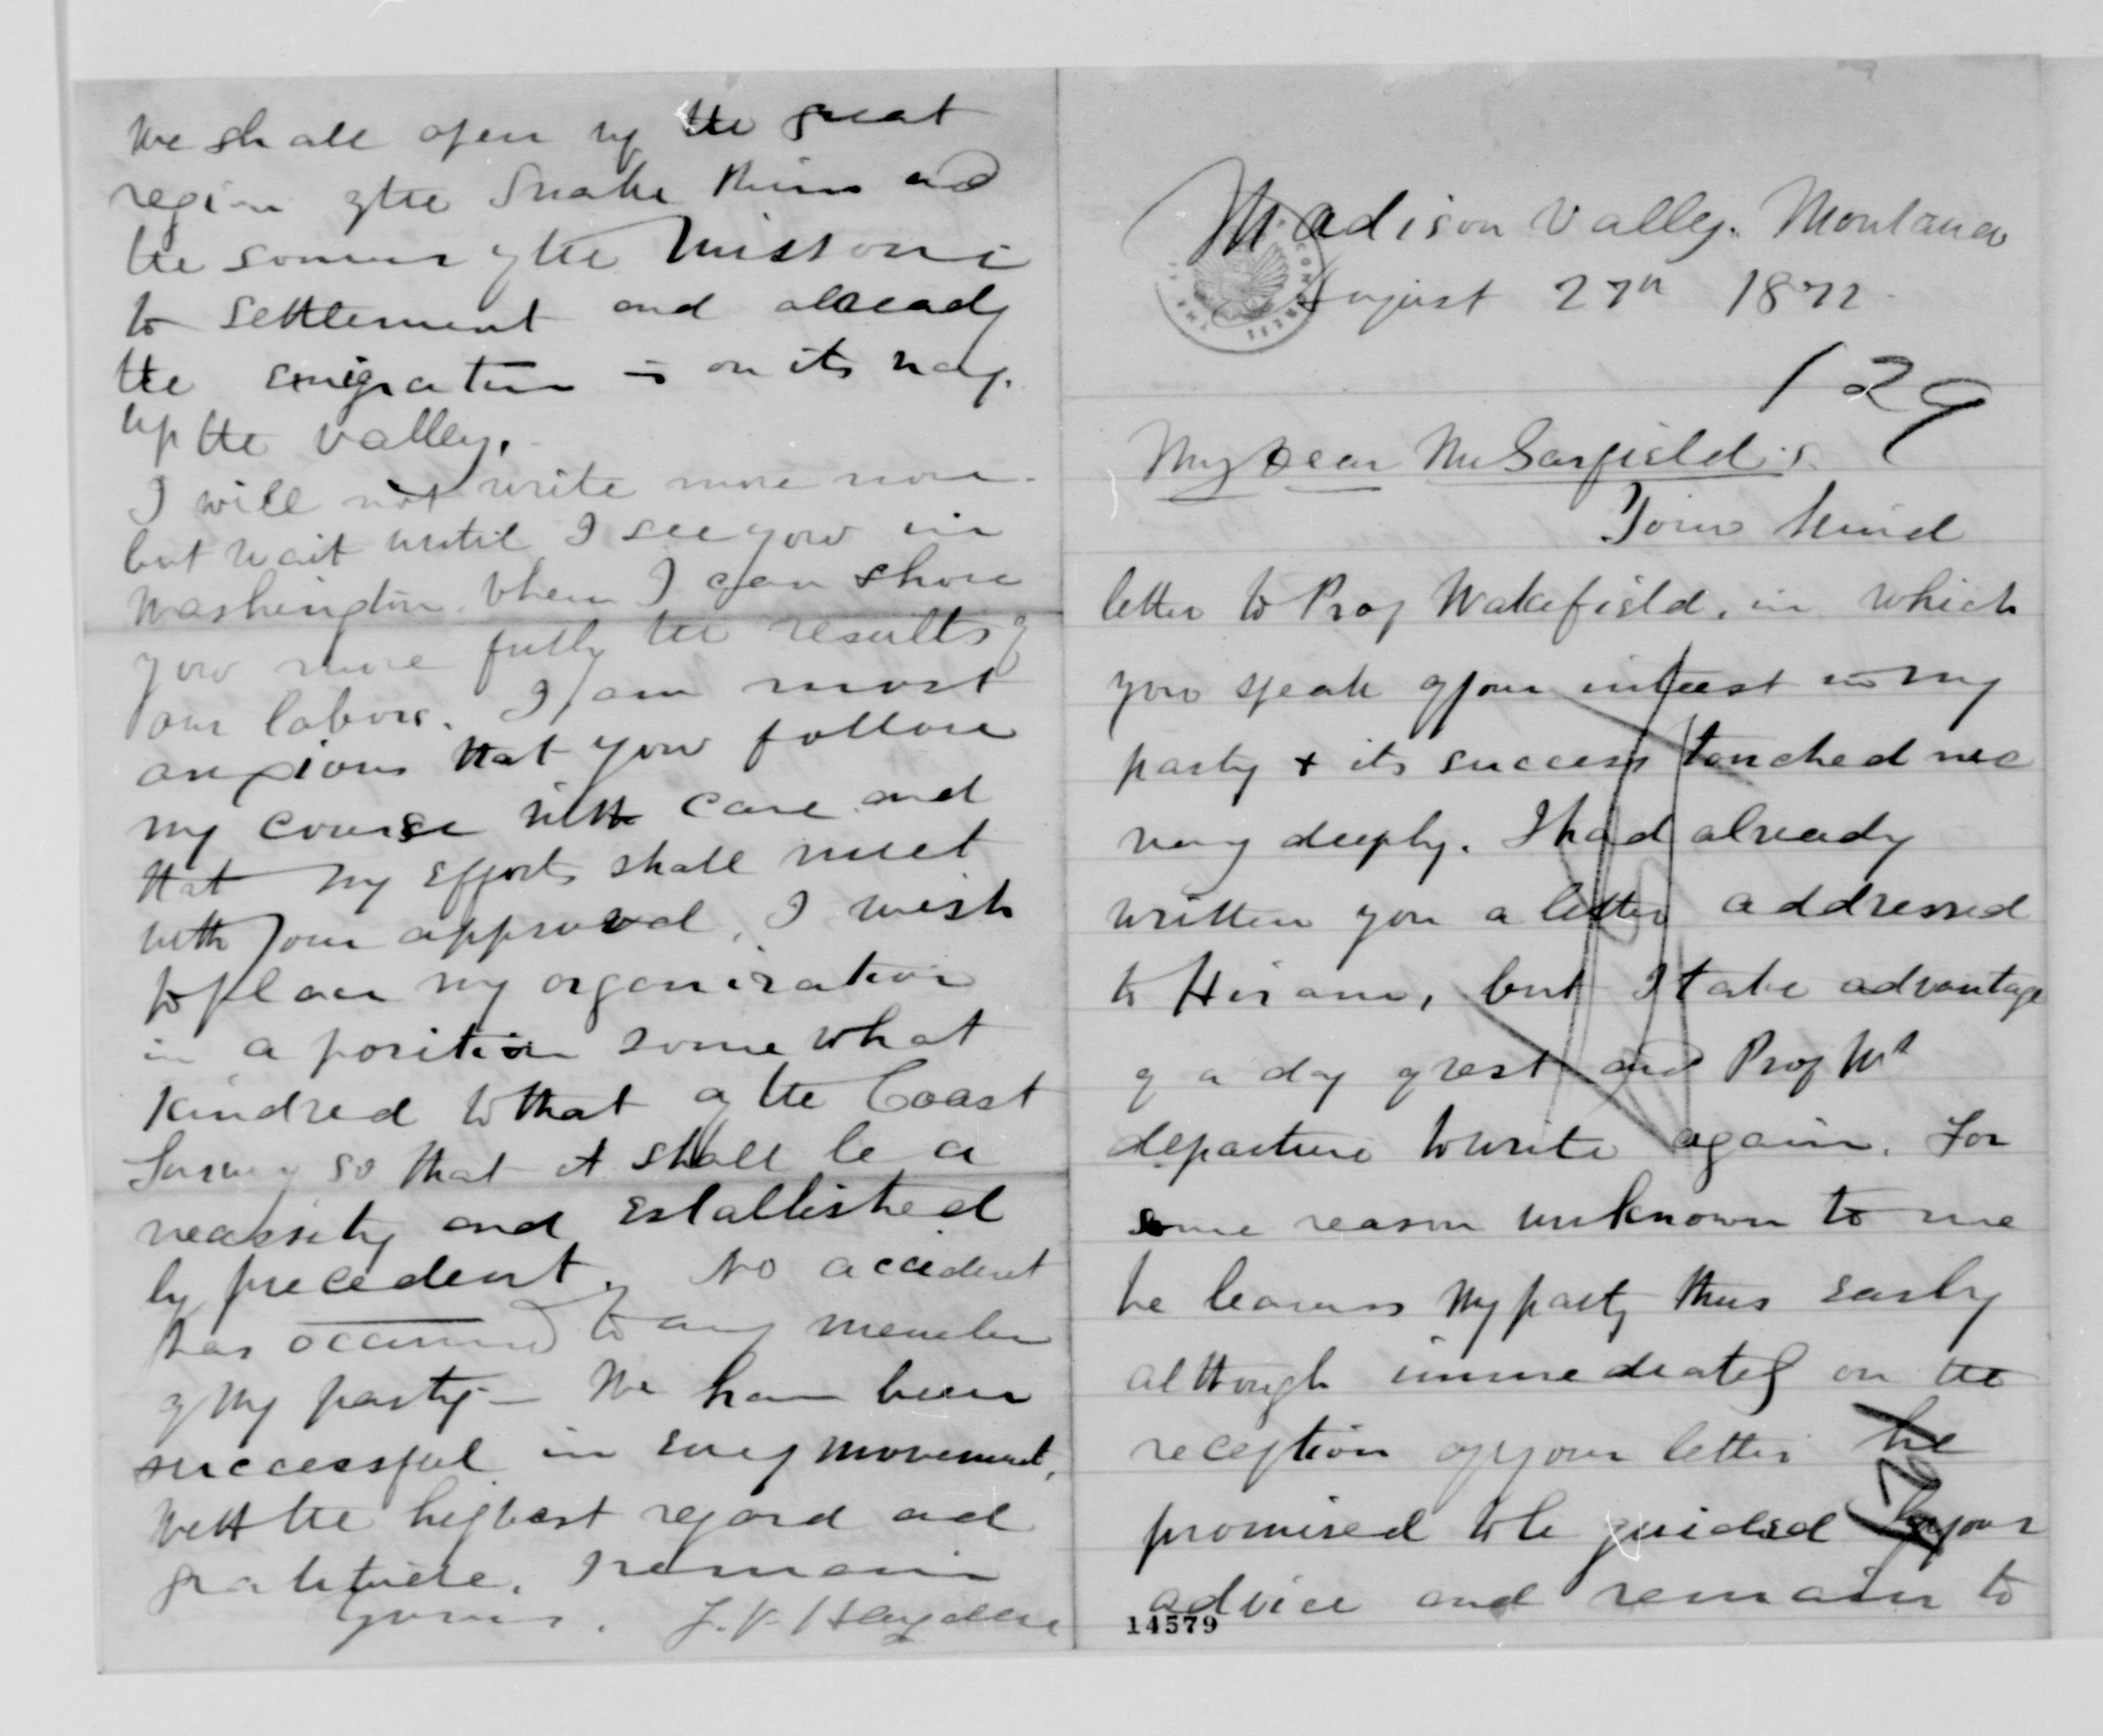 Madison Valley. Montana
August 27th 1872
129
My Dear Mr Garfield:
Your kind
letter to Prof Wakefield, in which
you speak of your interest in my
party + its success touched me
very deeply. I had already
written you a letter addressed
to Hiram, but I take advantage
of a day of rest and Prof Ws
departure to write again. For
some reason unknown to me
he leaves my party thus early
although immediately on the
reception of your letter he
promised to be guided by your
advice and remain to
14579
We shall open up the great
region of the Snake River and
the sources of the Missouri
to settlement and already
the emigration is on its way
up the valley.
I will not write more now
but wait until I see you in
Washington. When I can show
you more fully the results of
our labors. I am most
anxious that you follow
my course with care and
that my efforts shall meet
with your approval, I wish
to place my organization
in a position somewhat
kindred to that of the Coast
Survey so that it shall be a
necessity and established
by precedent. No accident
has occurred to any member
of my party - We have been
successful in every movement.
With the highest regard and
gratitude, I remain
yours. F. V. Hayden